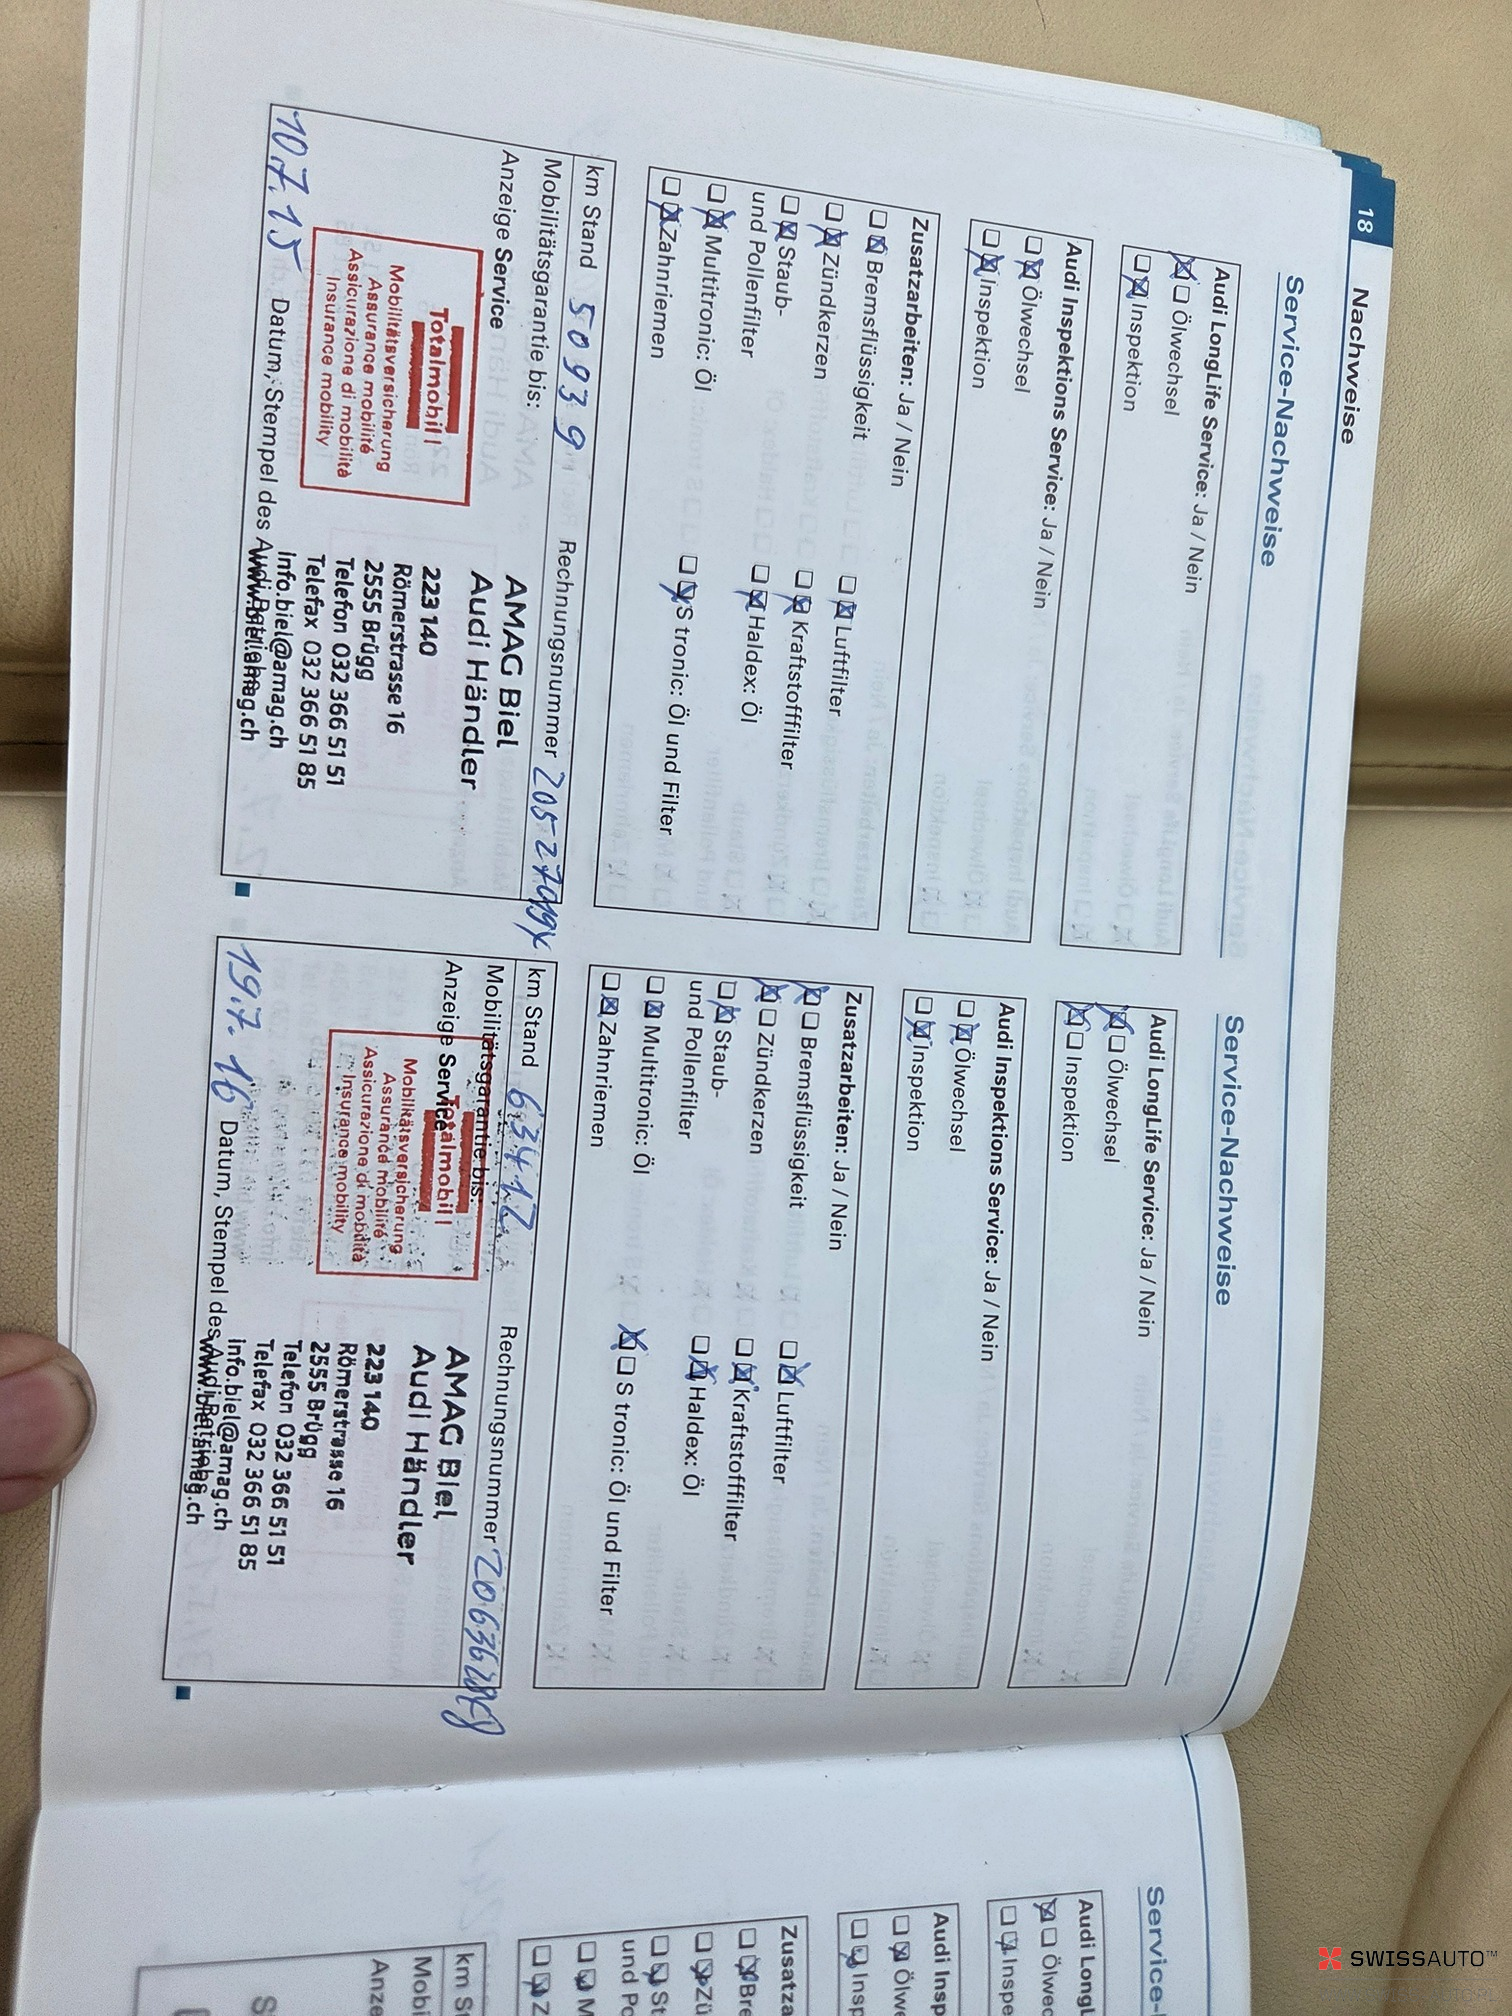 18 Nachweise
Service-Nachweise
Audi LongLife Service: Ja / Nein
Ölwechsel
Inspektion
Audi Inspektions Service: Ja / Nein
Ölwechsel
Inspektion
Zusatzarbeiten: Ja / Nein
Bremsflüssigkeit
Luftfilter
Zündkerzen
Kraftstofffilter
Staub-
und Pollenfilter
Haldex: Öl
Multitronic: Öl
S tronic: Öl und Filter
Zahnriemen
km Stand 50939
Rechnungsnummer
Mobilitätsgarantie bis:
Anzeige Service
Totalmobil!
Mobilitätsversicherung
Assurance mobilité
Assicurazione di mobilità
Insurance mobility
AMAG Biel
Audi Händler
223 140
Römerstrasse 16
2555 Brügg
Telefon 032 366 51 51
Telefax 032 366 51 85
info.biel@amag.ch
www.biel.amag.ch
10.7.15
Datum, Stempel des Audi Betriebs
Service-Nachweise
Audi LongLife Service: Ja / Nein
Ölwechsel
Inspektion
Audi Inspektions Service: Ja / Nein
Ölwechsel
Inspektion
Zusatzarbeiten: Ja / Nein
Bremsflüssigkeit
Luftfilter
Zündkerzen
Kraftstofffilter
Staub-
und Pollenfilter
Haldex: Öl
Multitronic: Öl
S tronic: Öl und Filter
Zahnriemen
km Stand 63412
Rechnungsnummer
Mobilitätsgarantie bis:
Anzeige Service
Totalmobil!
Mobilitätsversicherung
Assurance mobilité
Assicurazione di mobilità
Insurance mobility
AMAG Biel
Audi Händler
223 140
Römerstrasse 16
2555 Brügg
Telefon 032 366 51 51
Telefax 032 366 51 85
info.biel@amag.ch
www.biel.amag.ch
19.7.16
Datum, Stempel des Audi Betriebs
Service-
Audi Long
Ölwec
Inspe
Audi Insp
Ölw
Insp
Zusatza
Bre
Zü
St
und Po
M
Z
km S
Mobi
Anze
SWISSAUTO™